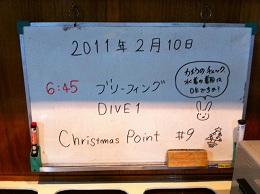 2011年2月10日
6:45 ブリーフィング
カメラのチェック
水着の着用は
OKですか?
DIVE1
Christmas Point #9